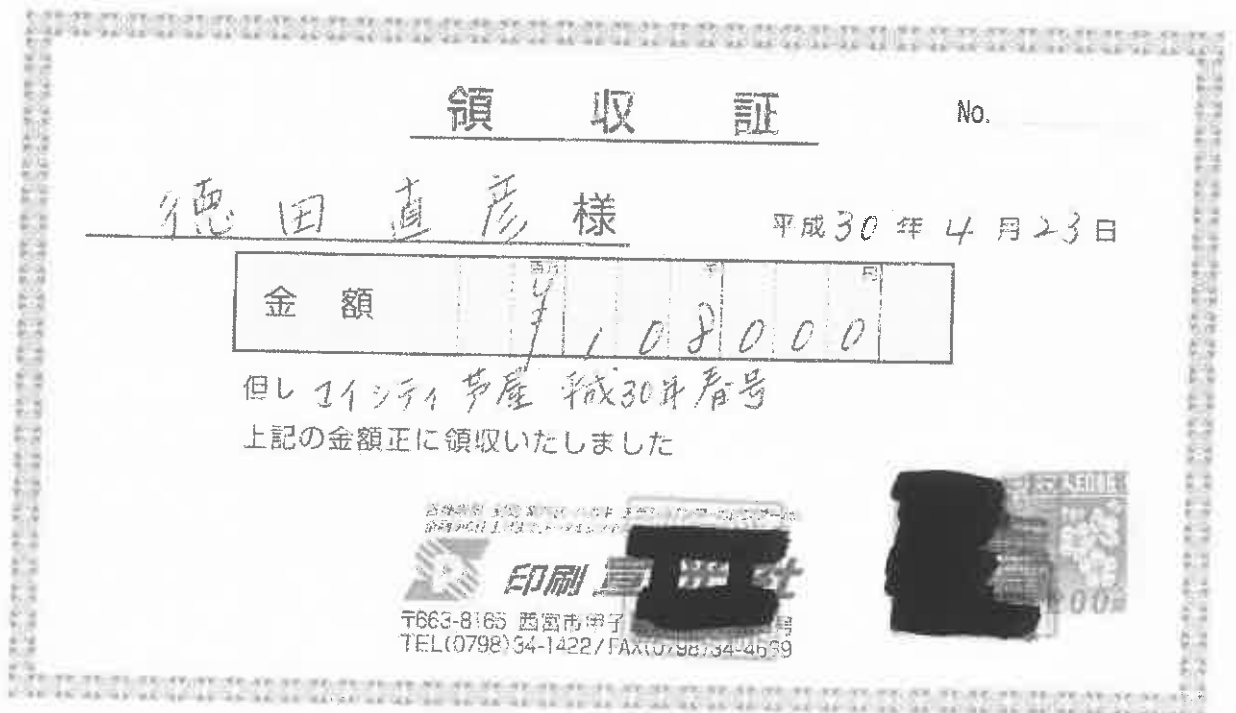 領収証
No.
徳田直彦様
平成30年4月23日
金額
百万 千 円
¥108000
但し マイシティ芦屋 平成30年春号
上記の金額正に領収いたしました
印刷
〒663-8165 西宮市甲子
号
TEL(0798)34-1422/FAX(0798)34-4639